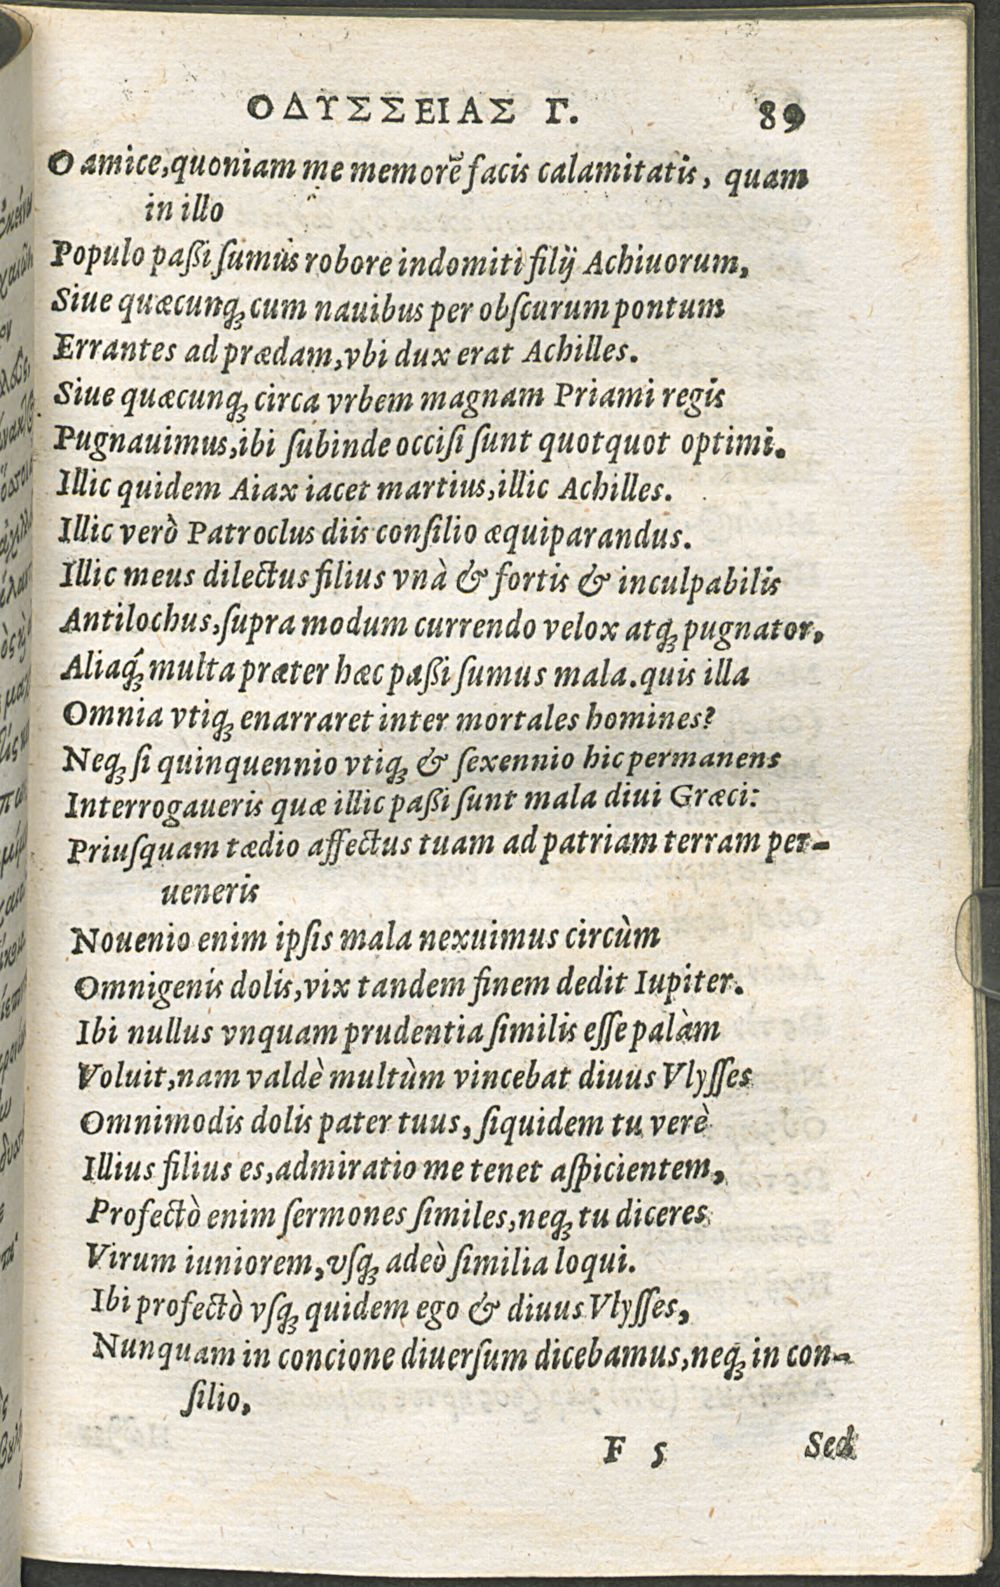 ΟΔΥΣΣΕΙΑΣ Γ. 89
O amice,quoniam me memorē facis calamitatis, quam
in illo
Populo paßi ſumus robore indomiti filij Achiuorum,
Siue quæcunq; cum nauibus per obſcurum pontum
Errantes ad prædam,vbi dux erat Achilles.
Siue quæcunq; circa vrbem magnam Priami regis
Pugnauimus,ibi ſubinde occiſi ſunt quotquot optimi.
Illic quidem Aiax iacet martius,illic Achilles.
Illic verò Patroclus diis conſilio æquiparandus.
Illic meus dilectus filius vnà & fortis & inculpabilis
Antilochus,ſupra modum currendo velox atq; pugnator,
Aliaq́; multa præter hæc paßi ſumus mala.quis illa
Omnia vtiq; enarraret inter mortales homines?
Neq; ſi quinquennio vtiq; & ſexennio hic permanens
Interrogaueris quæ illic paßi ſunt mala diui Græci:
Priuſquam tædio affectus tuam ad patriam terram per-
ueneris
Nouenio enim ipſis mala nexuimus circùm
Omnigenis dolis,vix tandem finem dedit Iupiter.
Ibi nullus vnquam prudentia ſimilis eſſe palàm
Voluit,nam valdè multùm vincebat diuus Vlyſſes
Omnimodis dolis pater tuus, ſiquidem tu verè
Illius filius es,admiratio me tenet aſpicientem,
Profectò enim ſermones ſimiles,neq; tu diceres
Virum iuniorem,vſq; adeò ſimilia loqui.
Ibi profectò vſq; quidem ego & diuus Vlyſſes,
Nunquam in concione diuerſum dicebamus,neq; in con-
ſilio,
F 5 Sed